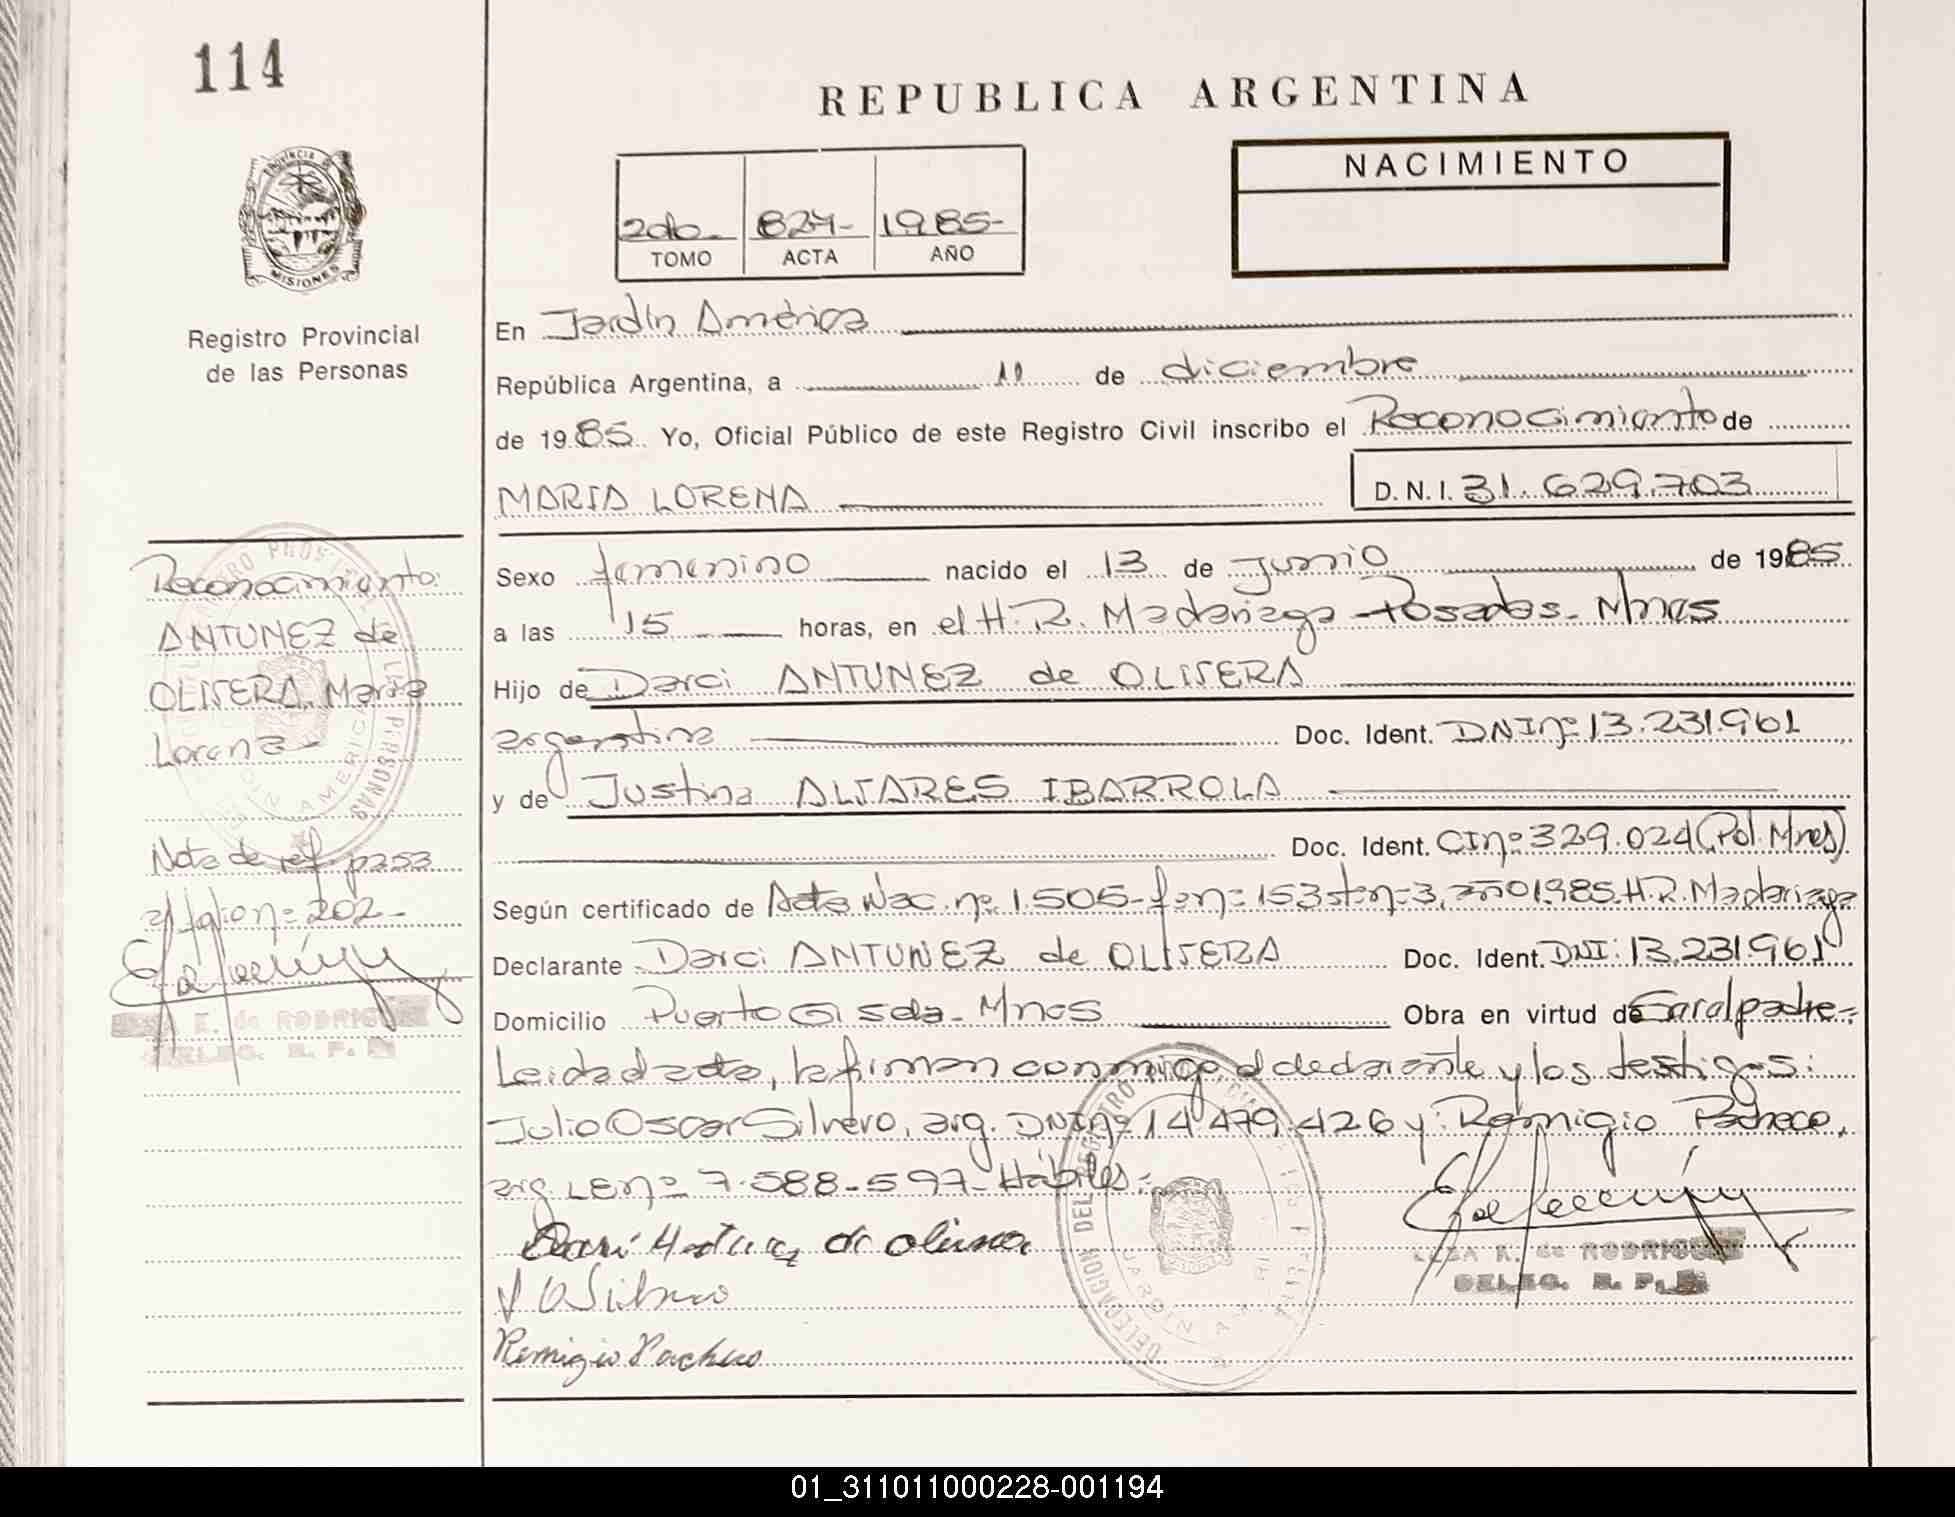 114
REPUBLICA ARGENTINA
PROVINCIA DE
MISIONES
Registro Provincial
de las Personas
NACIMIENTO
2do- 824- 1985-
TOMO ACTA AÑO
En Jardín América
República Argentina, a 11 de diciembre
de 1985 Yo, Oficial Público de este Registro Civil inscribo el Reconocimiento de
MARIA LORENA D.N.I. 31.629.703
Sexo femenino nacido el 13 de junio de 1985
a las 15 horas, en el H.R. Madariaga - Posadas - Mnes
Hijo de Darci ANTUNEZ de OLIVERA
argentina Doc. Ident. DNI nº 13.231.961
y de Justina ALVARES IBARROLA
Doc. Ident. CI nº 329.024 (Pol. Mnes)
Según certificado de Acta Nac. nº 1.505- fº nº 153 tº nº 3, año 1985. H.R. Madariaga
Declarante Darci ANTUNEZ de OLIVERA Doc. Ident. DNI: 13.231.961
Domicilio Puerto Gisela - Mnes Obra en virtud de Ser el padre.-
Leida el acta, la firman conmigo el declarante y los testigos:
Julio Oscar Silvero, arg. DNI nº 14.479.426 y: Remigio Pacheco,
arg. LE nº 7.588.597- Hábiles.-
Remigio Pacheco
ELSA E. de RODRIGUEZ
DELEG. R. P.
Reconocimiento:
ANTUNEZ de
OLIVERA, Maria
Lorena-
Nota de ref. pasa
al folio nº 202-
E. de RODRIGUEZ
DELEG. R. P.
01_311011000228-001194